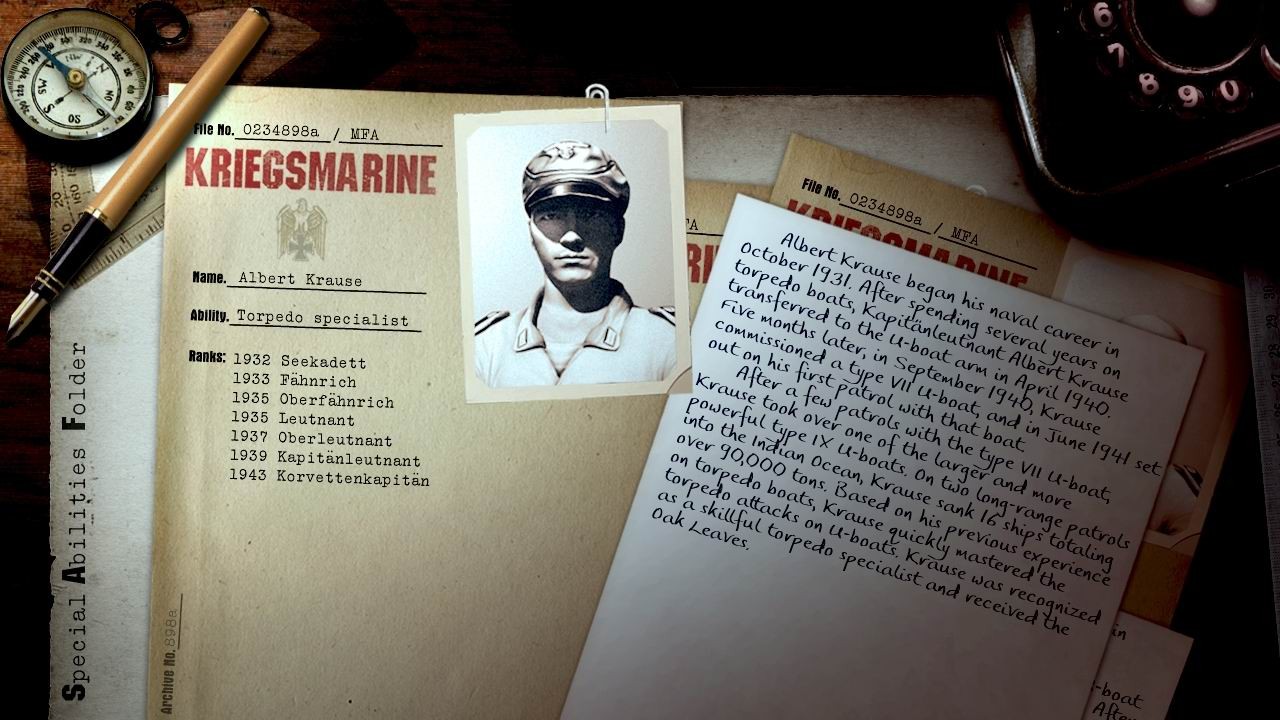 File No. 0234898a / MFA
KRIEGSMARINE
Name. Albert Krause
Ability. Torpedo specialist
Ranks: 1932 Seekadett
1933 Fähnrich
1935 Oberfähnrich
1935 Leutnant
1937 Oberleutnant
1939 Kapitänleutnant
1943 Korvettenkapitän
Archive No. 898a
Special Abilities Folder
File No. 0234898a / MFA
KRIEGSMARINE
Albert Krause began his naval career in
October 1931. After spending several years on
torpedo boats, Kapitänleutnant Albert Krause
transferred to the U-boat arm in April 1940.
Five months later, in September 1940, Krause
commissioned a type VII U-boat, and in June 1941 set
out on his first patrol with that boat.
After a few patrols with the type VII U-boat,
Krause took over one of the larger and more
powerful type IX U-boats. On two long-range patrols
into the Indian Ocean, Krause sank 16 ships totaling
over 90,000 tons. Based on his previous experience
on torpedo boats, Krause quickly mastered the
torpedo attacks on U-boats. Krause was recognized
as a skillful torpedo specialist and received the
Oak Leaves.
in
-boat
After
6
7
8
9
0